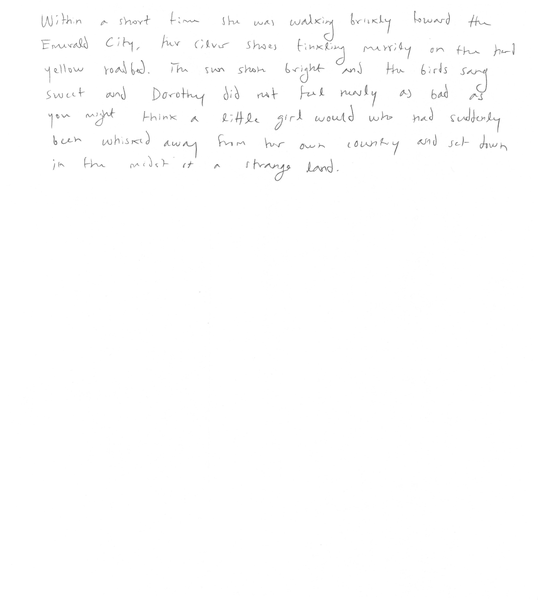 Within a short time she was walking briskly toward the
Emerald City, her silver shoes tinkling merrily on the hard
yellow roadbed. The sun shone bright and the birds sang
sweet and Dorothy did not feel nearly as bad as
you might think a little girl would who had suddenly
been whisked away from her own country and set down
in the midst of a strange land.